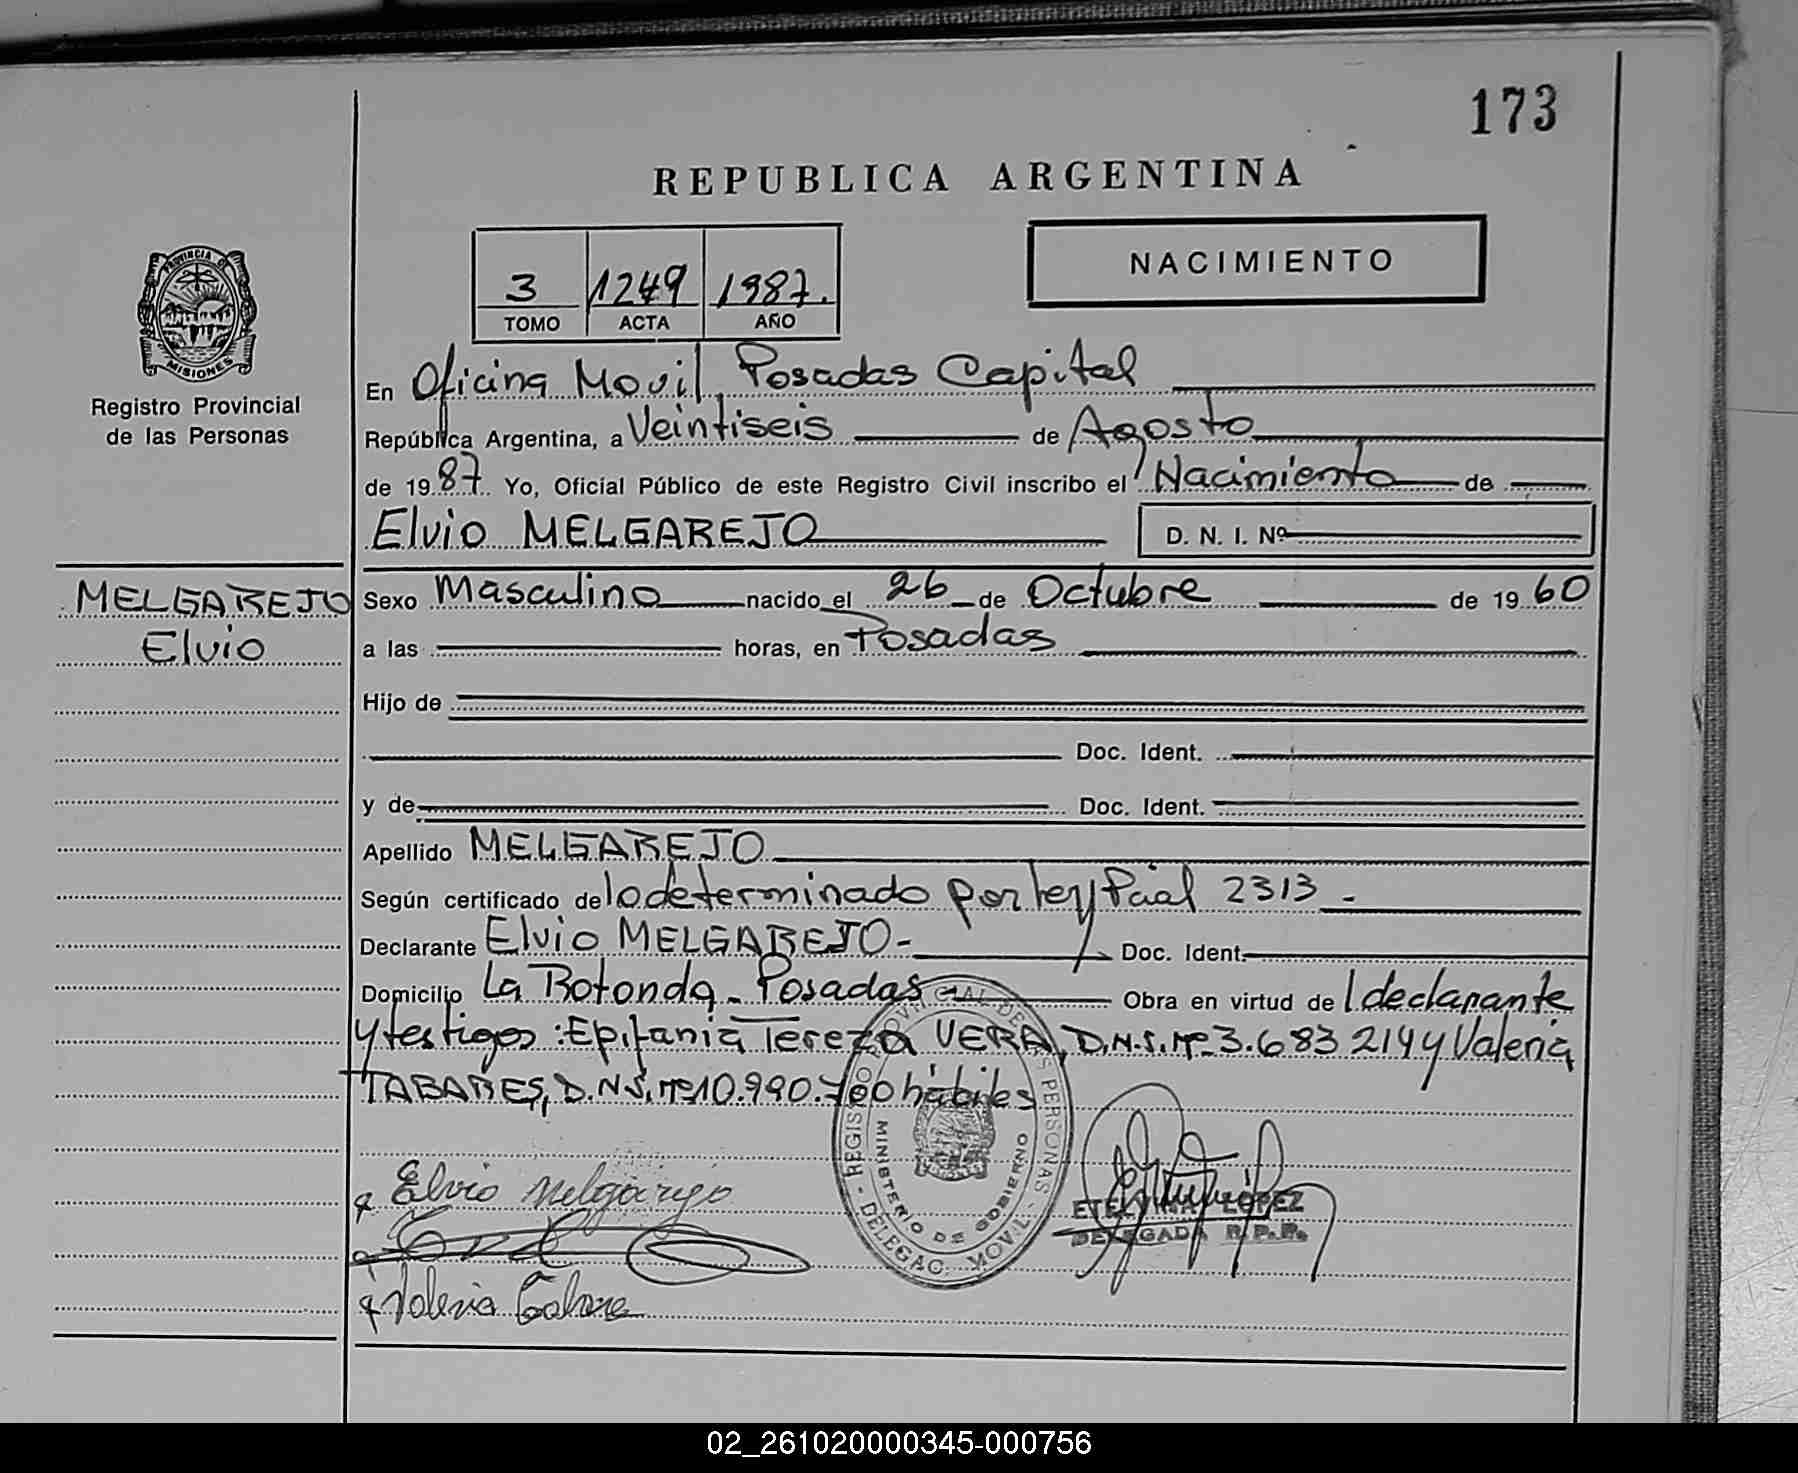 173
REPUBLICA ARGENTINA
3 1249 1987.
TOMO ACTA AÑO
NACIMIENTO
PROVINCIA DE MISIONES
Registro Provincial
de las Personas
En Oficina Movil, Posadas Capital
República Argentina, a Veintiseis de Agosto
de 1987. Yo, Oficial Público de este Registro Civil inscribo el Nacimiento de
Elvio MELGAREJO D. N. I. Nº
MELGAREJO
Elvio
Sexo Masculino nacido el 26 de Octubre de 1960
a las horas, en Posadas
Hijo de
Doc. Ident.
y de Doc. Ident.
Apellido MELGAREJO
Según certificado de lo determinado por ley Pcial 2313-
Declarante Elvio MELGAREJO- Doc. Ident.
Domicilio La Rotonda - Posadas - Obra en virtud de l declarante
y testigos: Epifania Tereza VERA, D.N.I. Nº 3.683.214 y Valeria
TABARES, D.N.I. Nº 10.990.700 hábiles
REGISTRO PROVINCIAL DE LAS PERSONAS - DELEGAC. MOVIL -
MINISTERIO DE GOBIERNO
Elvio Melgarejo
ETELVINA LÓPEZ
DELEGADA R.P.P.
Valeria Tabare
02_261020000345-000756